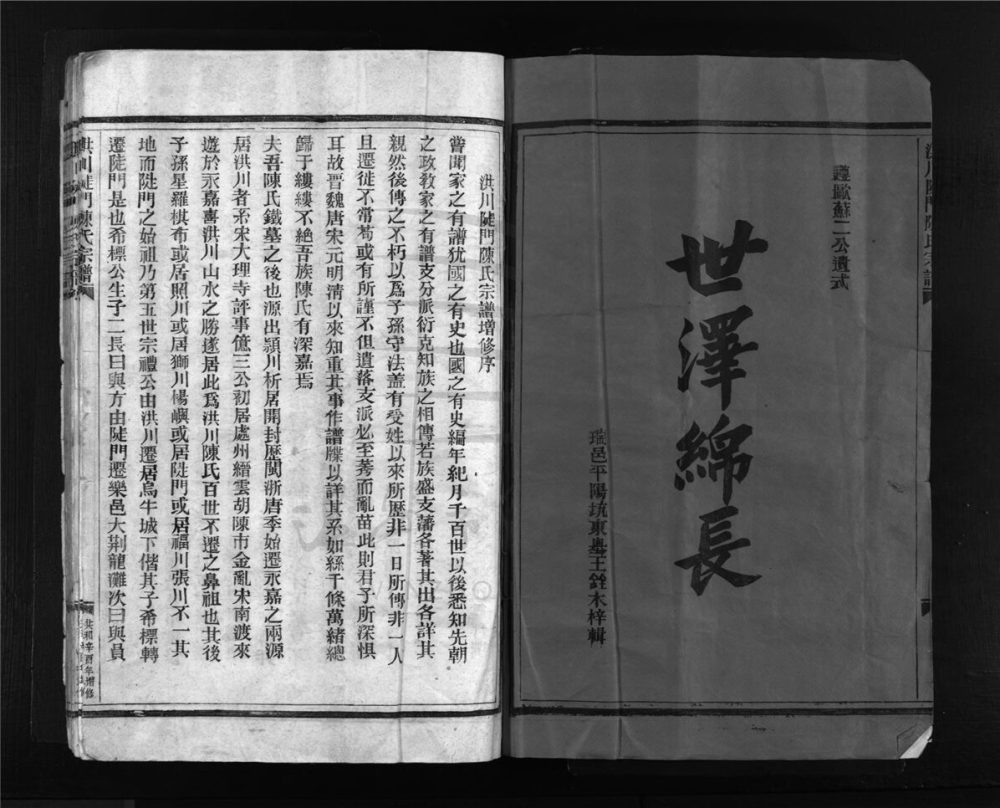 謹歐蘇二公遺式
世澤綿長
瑞邑平陽坑東壟王銓木梓輯
洪川陡門陳氏宗譜增修序
嘗聞家之有譜犹國之有史也國之有史編年紀月千百世以後悉知先朝
之政敎家之有譜支分派衍克知族之相傳若族盛支藩各著其出各詳其
親然後傳之不朽以爲子孫守法盖有受姓以來所歷非一日所傳非一人
且遷徙不常茍或有所謹不但遺落支派必至莠而亂苗此則君子所深惧
耳故晋魏唐宋元明淸以來知重其事作譜牒以詳其系如絲千條萬緒總
歸于縷縷不絕吾族陳氏有深嘉焉
夫吾陳氏鐵墓之後也源出潁川析居開封歷閩浙唐季始遷永嘉之兩源
居洪川者系宋大理寺評事億三公初居處州縉雲胡陳市金亂宋南渡來
遊於永嘉喜洪川山水之勝遂居此爲洪川陳氏百世不遷之鼻祖也其後
子孫星羅棋布或居照川或居獅川楊嶼或居陡門或居福川張川不一其
地而陡門之始祖乃第五世宗禮公由洪川遷居烏牛城下偕其子希標轉
遷陡門是也希標公生子二長曰與方由陡門遷樂邑大荆龍灘次曰與員
洪川陡門陳氏宗譜
共和辛酉年增修